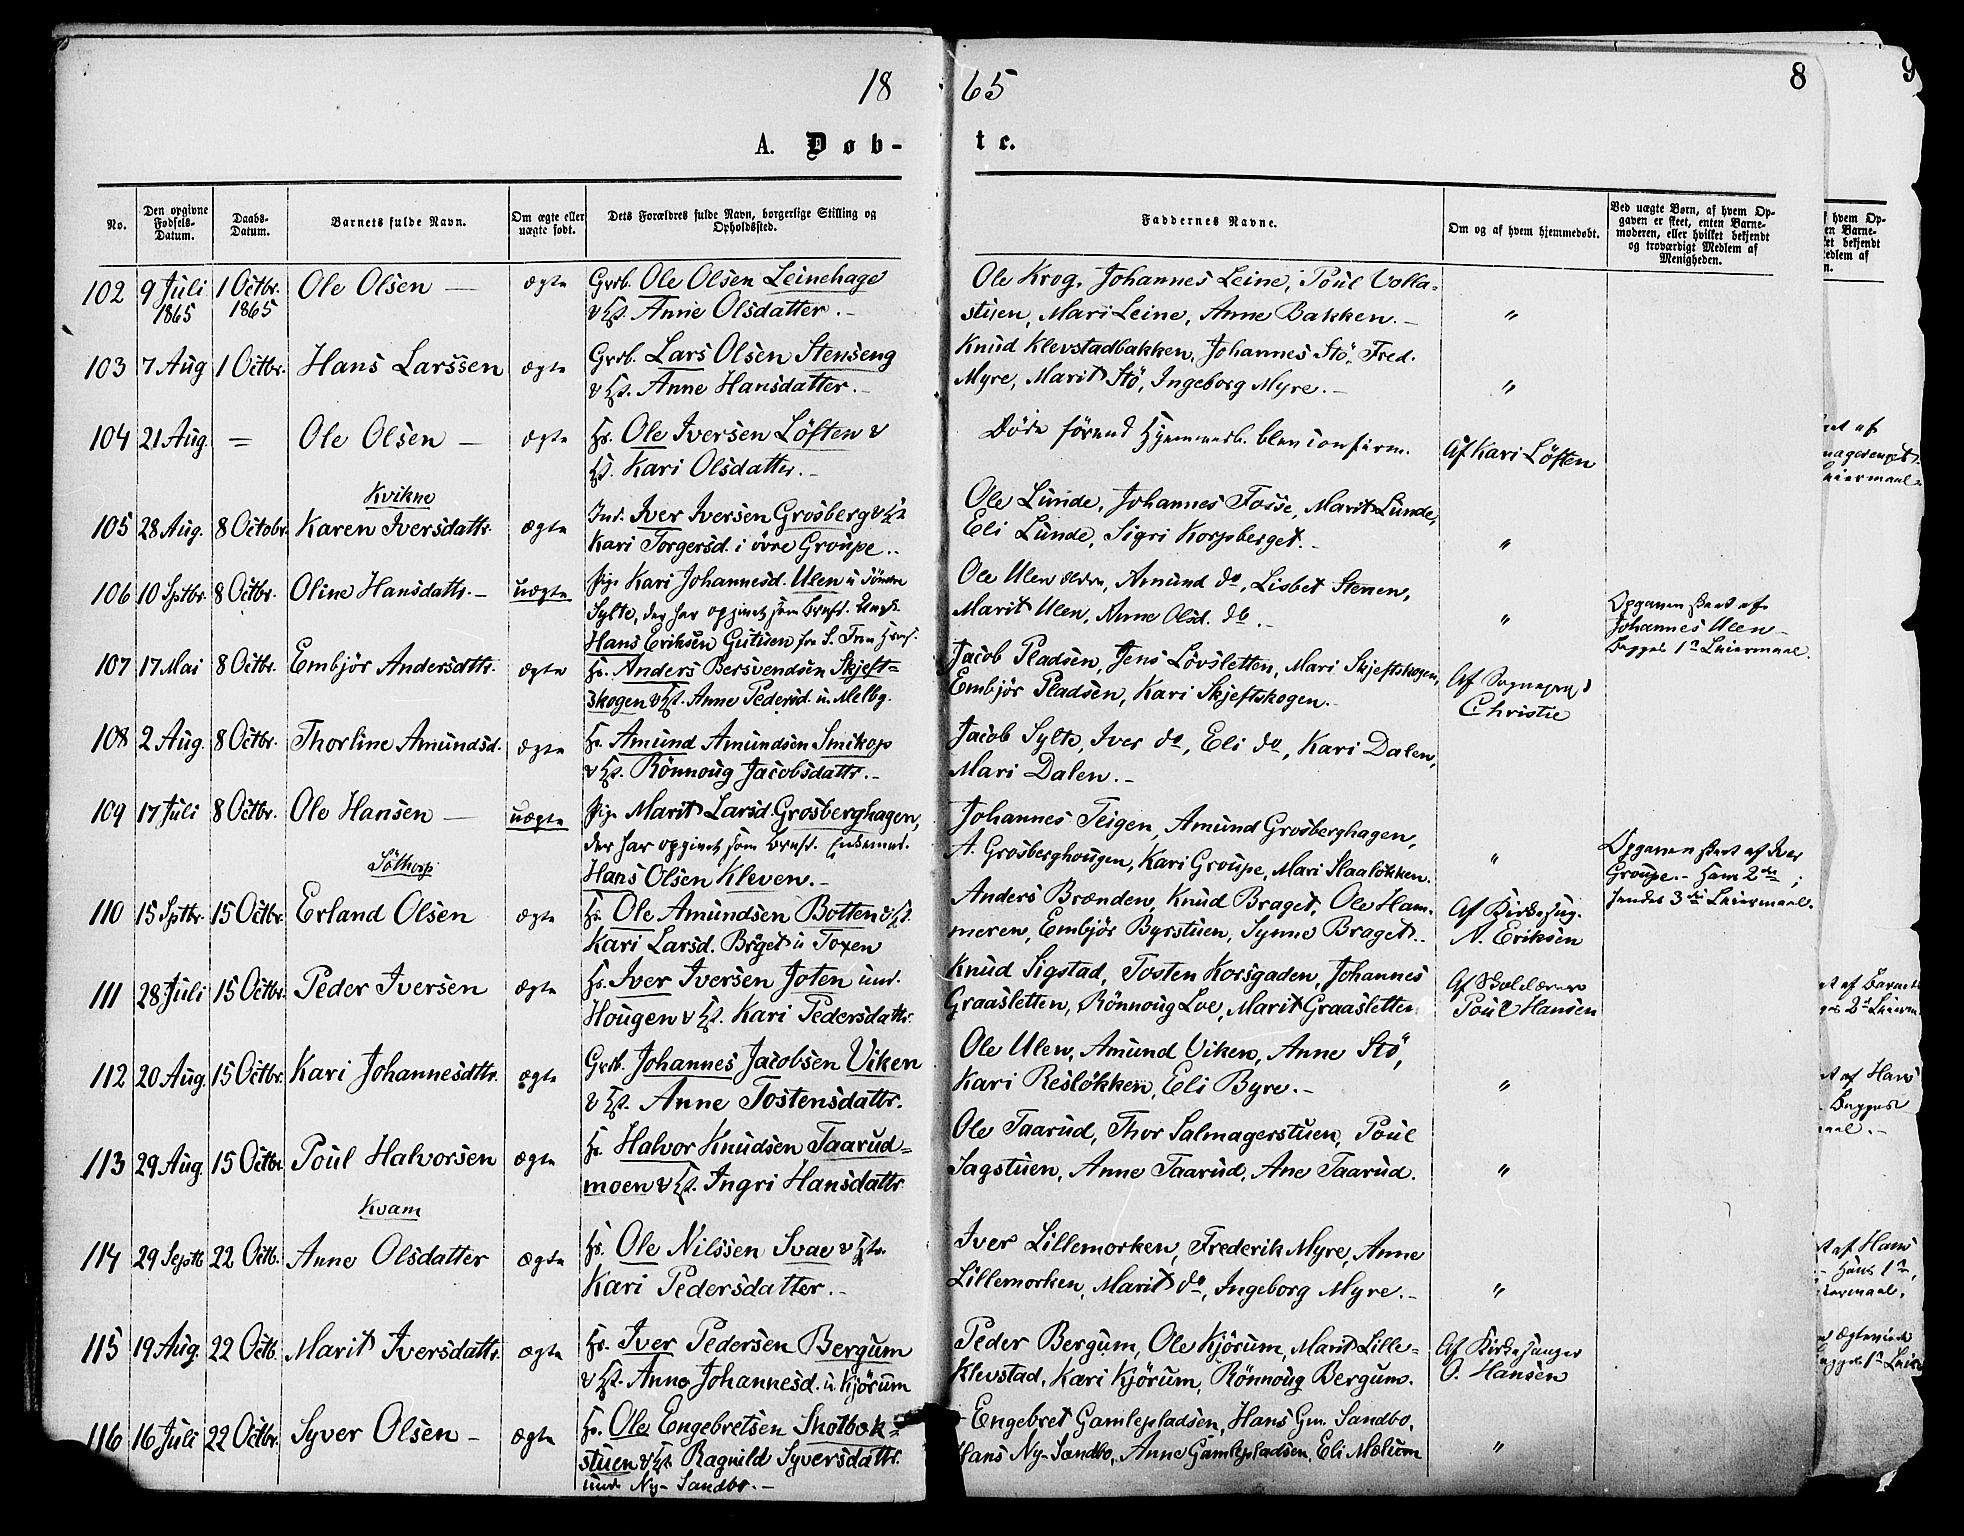 18 65 8
A. Døb- te.
No.
Den opgivne Fødsels-Datum.
Daabs-Datum.
Barnets fulde Navn.
Om ægte eller uægte født.
Dets Forældres fulde Navn, borgerlige Stilling og Opholdssted.
Faddernes Navne.
Om og af hvem hjemmedøbt.
Ved uægte Børn, af hvem Opgaven er skeet, enten Barnemoderen, eller hvilket bekjendt og troværdigt Medlem af Menigheden.
102 9 Juli 1865 1 Octbr. 1865 Ole Olsen — ægte Grdb. Ole Olsen Leinehage
Anne Olsdatter. –
Ole Krog, Johannes Leine, Poul Volla-
stuen, Mari Leine, Anne Bakken. – "
103 7 Aug 1 Octbr. Hans Larssen ægte Grdb. Lars Olsen Stenseng
Anne Hansdatter. –
Knud Klevstadbakken, Johannes Stö, Fred.
Myre, Marit Stö, Ingeborg Myre. – "
104 21 Aug. = Ole Olsen – ægte Hs. Ole Iversen Löften &
Kari Olsdatter. –
Døde förend Hjemmed. blev confirm. Af Kari Löften
Kvikne
105 28 Aug. 8 Octobr. Karen Iversdattr. ægte Ind. Iver Iversen Grosberg &
Kari Torgersd. i övre Groupe. –
Ole Lunde, Johannes Fosse, Marit Lunde,
Eli Lunde, Sigri Korpberget. – "
106 10 Sptbr. 8 Octbr. Oline Hansdattr. – uægte Pige Kari Johannesd. Ulen u Søndre
Sylte, der har opgivet som Barnef. Ungk.
Hans Eriksen Gutuen fra S. Fron
Ole Ulen ældre, Amund do, Lisbet Stenen,
Marit Ulen, Anne Olsd. do. – "
Opgaven skeet af
Johannes Ulen –
Begges 1ste Leiermaal.
107 17 Mai 8 Octbr. Embjör Andersdattr. ægte Hs. Anders Bersvendsen Skjeft-
skogen & Anne Pedersd u. Melbg.
Jacob Pladsen, Jens Lövsletten, Mari Skjeftskogen,
Embjör Pladsen, Kari Skjeftskogen. –
Af Sognepræst
Christie
108 2 Aug. 8 Octbr. Thorline Amundsd. ægte Hs. Amund Amundsen Smikop
Rönnoug Jacobsdattr. –
Jacob Sylte, Iver do, Eli do, Kari Dalen,
Mari Dalen. –
109 17 Juli 8 Octbr. Ole Hansen — uægte Pige Marit Larsd. Grosberghagen,
der har opgivet som Barnef. Enkemd.
Hans Olsen Kleven. –
Johannes Teigen, Amund Grosberghagen,
A. Grosberghougen, Kari Groupe, Mari Slaalökken. "
Opgaven skeet af Iver
Groupe. – Hans 2det;
hendes 3die Leiermaal.
Söthorp
110 15 Sptbr. 15 Octbr. Erland Olsen ægte Hs. Ole Amundsen Botten &
Kari Larsd. Braget u Toxen
Anders Brænden, Knud Braget, Ole Ham-
meren, Embjör Byrstuen, Synne Braget. –
Af Kirkesng.
A. Eriksen
111 28 Juli 15 Octbr. Peder Iversen ægte Hs. Iver Iversen Joten und.
Hougen & Kari Pedersdattr.
Knud Sigstad, Tosten Korsgaden, Johannes
Graasletten, Rönnoug Loe, Marit Graasletten.
Af Skolelærer
Poul Hansen
112 20 Aug. 15 Octbr. Kari Johannesdttr. ægte Grdb. Johannes Jacobsen Viken
& Anne Tostensdattr.
Ole Ulen, Amund Viken, Anne Stö,
Kari Reslökken, Eli Byre. – "
113 29 Aug. 15 Octbr. Poul Halvorsen ægte Hs. Halvor Knudsen Taarud-
moen & Ingri Hansdattr
Ole Taarud, Thor Salmagerstuen, Poul
Sagstuen, Anne Taarud, Ane Taarud. "
Kvam
114 29 Septb 22 Octb. Anne Olsdatter ægte Hs. Ole Nilssen Svae &
Kari Pedersdatter. –
Iver Lillemorken, Frederik Myre, Anne
Lillemorken, Marit do, Ingeborg Myre. – "
115 19 Aug. 22 Octb. Marit Iversdattr. ægte Hs. Iver Pedersen Bergum
& Anne Johannesd. u. Kjörum
Peder Bergum, Ole Kjörum, Marit Lille-
Klevstad, Kari Kjörum, Rönnoug Bergum.
Af Kirkesanger
O. Hansen
116 16 Juli 22 Octbr. Syver Olsen – ægte Hs. Ole Engebretsen Skotbak-
stuen & Ragnild Syversdattr.
unde Ny-Sandbo. –
Engebret Gamlepladsen, Hans Gm. Sandbo,
Hans Ny-Sandbo, Anne Gamlepladsen, Eli Mælum "
9